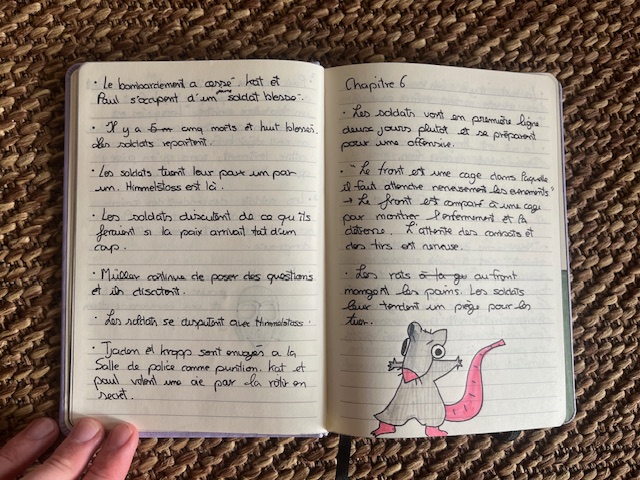 • Le bombardement a cessé. Kat et
Paul s'occupent d'un jeune soldat blessé.
• Il y a 5 m cinq morts et huit blessés.
Les soldats repartent.
• Les soldats tuent leur poux un par
un. Himmelstoss est là.
• Les soldats discutent de ce qu'ils
feraient si la paix arrivait tout d'un
coup.
• Müller continue de poser des questions
et ils discutent.
• Les soldats se disputent avec Himmelstoss.
• Tjaden et Kropp sont envoyés a la
Salle de police comme punition. Kat et
paul volent une oie par la rôtir en
secret.
Chapitre 6
• Les soldats vont en première ligne
deux jours plutot et se préparent
pour une offensive.
• "Le front est une cage dans laquelle
il faut attendre nerveusement les evenements"
→ Le front est comparé à une cage
par montrer l'enfermement et la
détresse. L'attente des combats et
des tirs est nerveuse.
• Les rats à la gu au front
mangent les pains. Les soldats
leur tendent un piège pour les
tuer.